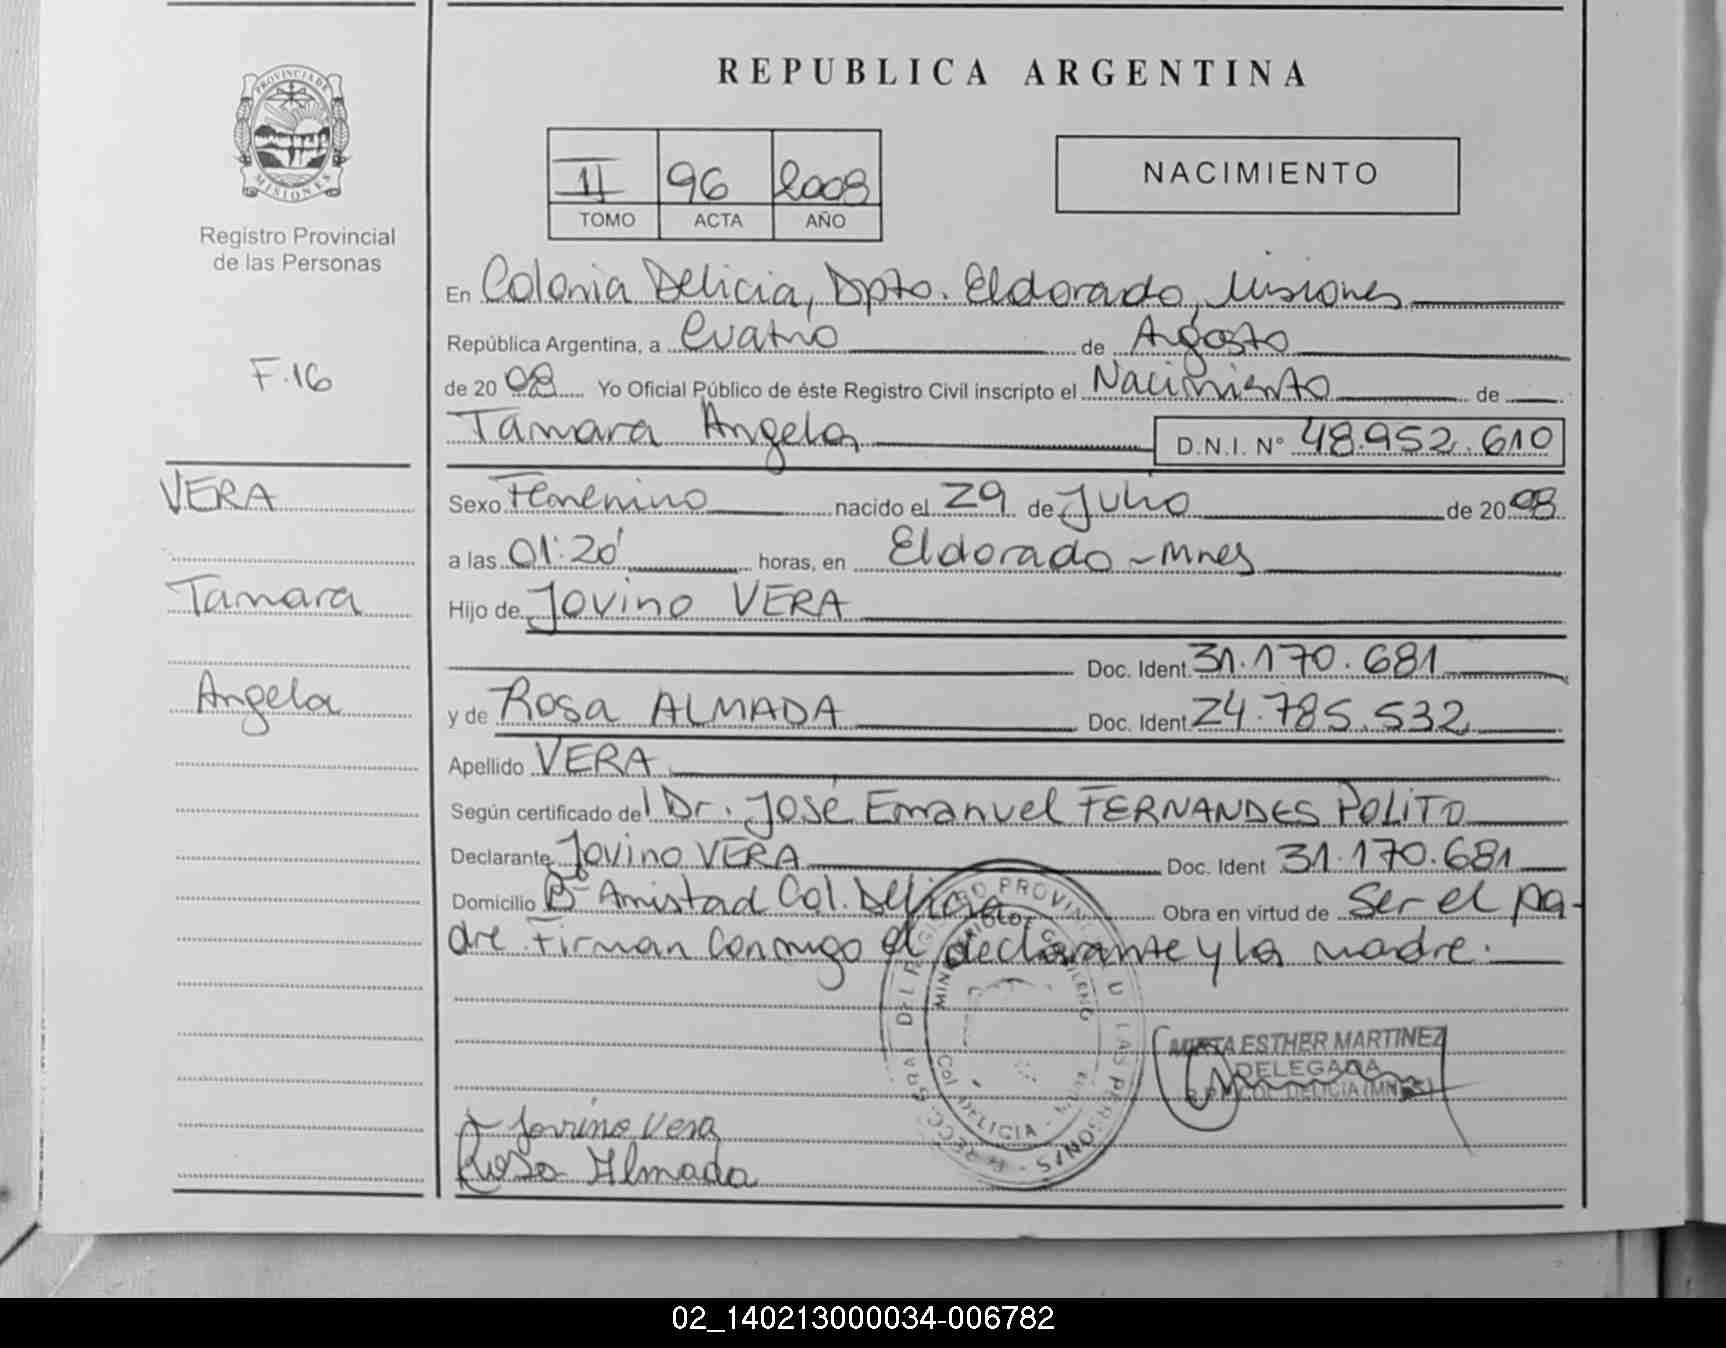 PROVINCIA DE
MISIONES
Registro Provincial
de las Personas
F.16
VERA
Tamara
Angela
REPUBLICA ARGENTINA
II 96 2008
TOMO ACTA AÑO
NACIMIENTO
En Colonia Delicia, Dpto. Eldorado, Misiones
República Argentina, a Cuatro de Agosto
de 2008 Yo Oficial Público de éste Registro Civil inscripto el Nacimiento de
Tamara Angela D.N.I. Nº 48.952.610
Sexo Femenino nacido el 29 de Julio de 2008
a las 01:20' horas, en Eldorado - Mnes
Hijo de Jovino VERA
Doc. Ident. 31.170.681
y de Rosa ALMADA Doc. Ident. 24.785.532
Apellido VERA
Según certificado del Dr. José Emanuel FERNANDES POLITO
Declarante Jovino VERA Doc. Ident 31.170.681
Domicilio Bº Amistad Col. Delicia Obra en virtud de Ser el pa-
dre. Firman conmigo el declarante y la madre.
MIRTA ESTHER MARTINEZ
DELEGADA
COL. DELICIA (MNES)
Jovino Vera
Rosa Almada
02_140213000034-006782